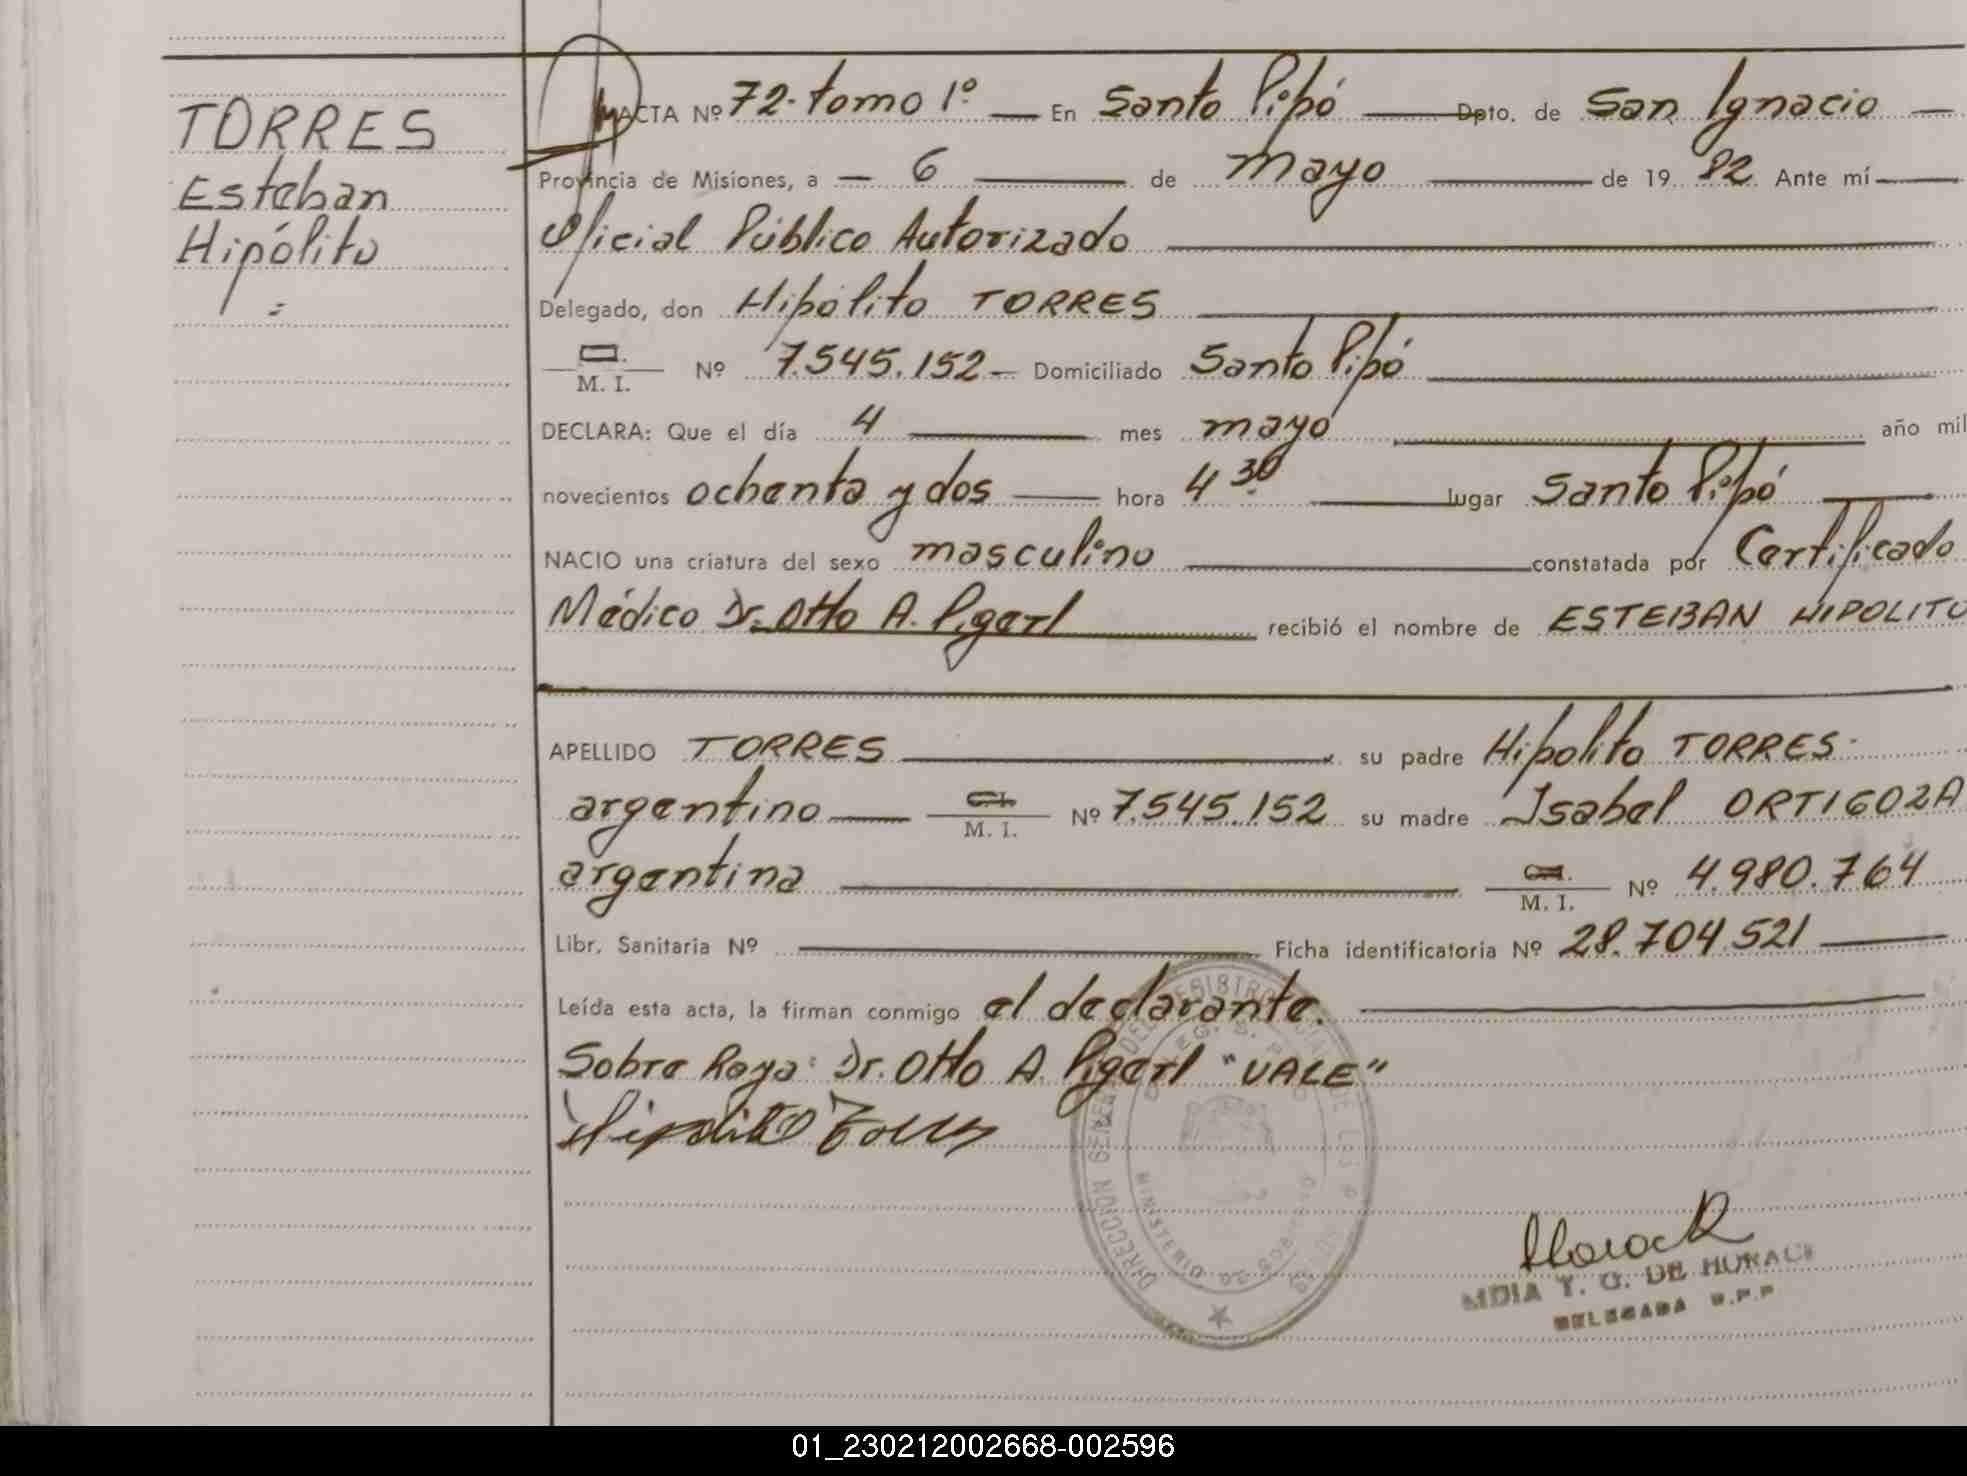 TORRES
Esteban
Hipólito
ACTA Nº 72- tomo 1º En Santo Pipó Dpto. de San Ignacio
Provincia de Misiones, a 6 de mayo de 19 82 Ante mí
Oficial Público Autorizado
Delegado, don Hipólito TORRES
M. I. Nº 7.545.152 Domiciliado Santo Pipó
DECLARA: Que el día 4 mes mayo año mil
novecientos ochenta y dos hora 4 30 lugar Santo Pipó
NACIO una criatura del sexo masculino constatada por Certificado
Médico Dr. Otto A. Pigerl recibió el nombre de ESTEBAN HIPOLITO
APELLIDO TORRES su padre Hipolito TORRES
argentino M. I. Nº 7.545.152 su madre Isabel ORTIGOZA
argentina M. I. Nº 4.980.764
Libr. Sanitaria Nº Ficha identificatoria Nº 28.704.521
Leída esta acta, la firman conmigo el declarante.
Sobre Raya: Dr. Otto A. Pigerl "VALE"
Hipolito Torres
DIRECCION GENERAL DEL REGISTRO DE LAS
MINISTERIO DE GOBIERNO
Horack
T. G. DE HORACK
DELEGADA R.P.P
01_230212002668-002596